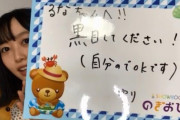 るなちゃんへ!!
黒目してください!
(自分のでOKです)
のぎおび